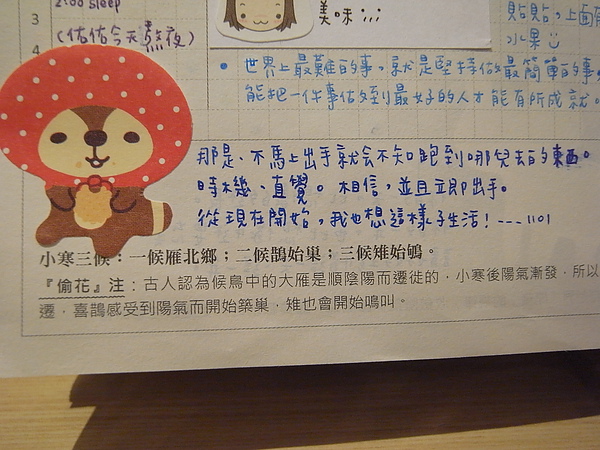 2:00 sleep
3
(佑佑今天熬夜)
4
美味;;;
貼貼,上面有
水果
• 世界上最難的事,就是堅持做最簡單的事,
能把一件事做到最好的人才能有所成就。
那是、不馬上出手就会不知跑到哪兒去的東西。
時機、直覺。相信,並且立即出手。
從現在開始,我也想這樣子生活!---1101
小寒三候:一候雁北鄉;二候鵲始巢;三候雉始鴝。
『偷花』注:古人認為候鳥中的大雁是順陰陽而遷徙的,小寒後陽氣漸發,所以
遷,喜鵲感受到陽氣而開始築巢,雉也會開始鳴叫。